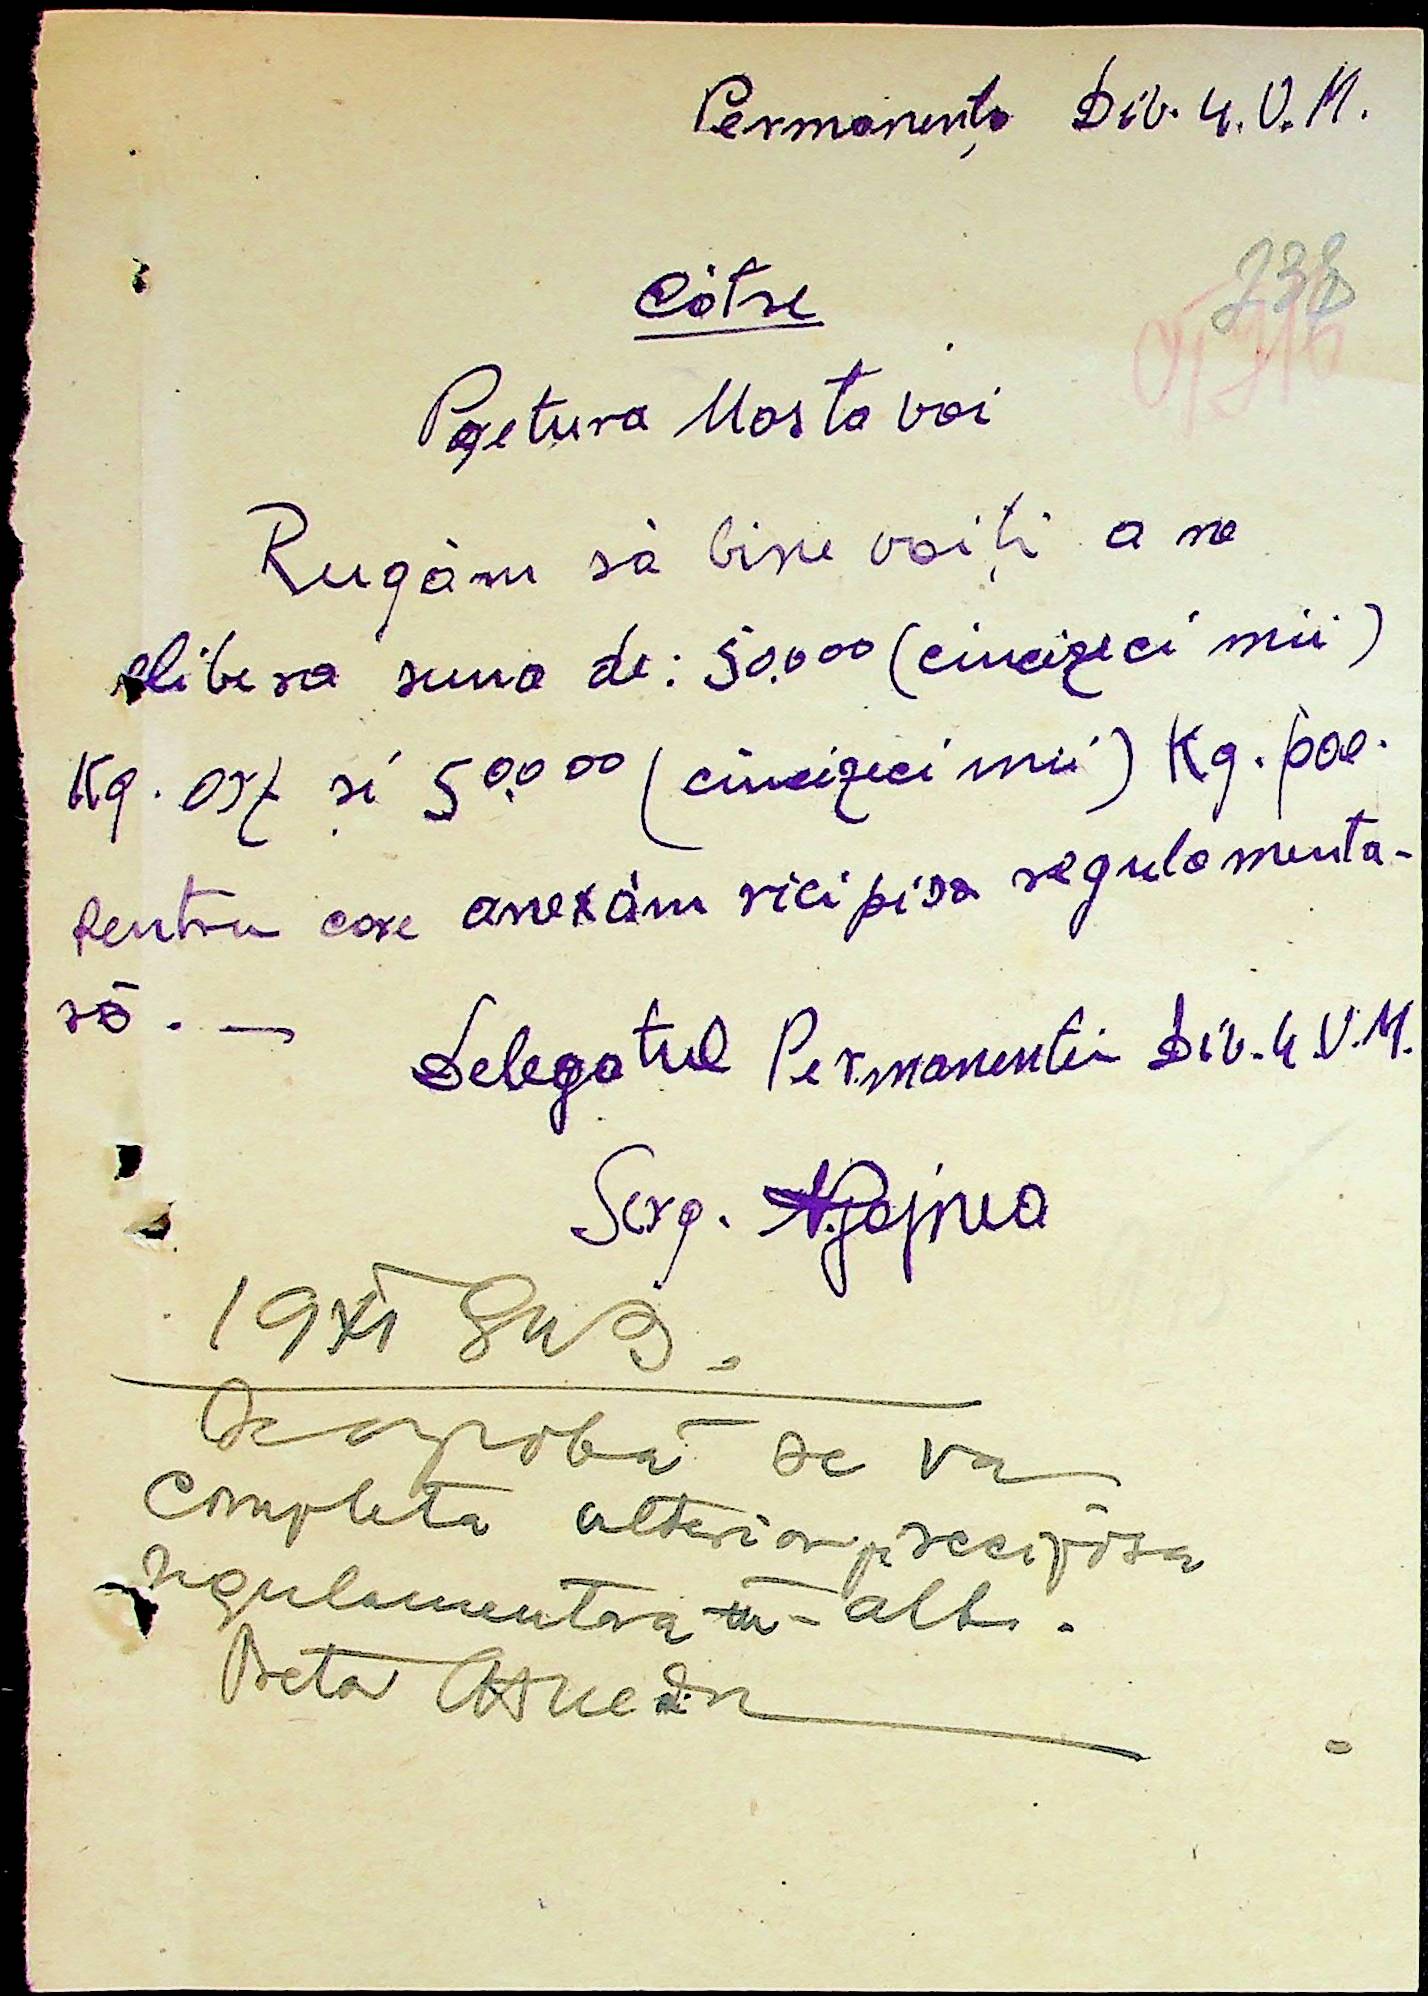 Permanența Div. 4. V.M.
238
Către
Pretura Mostovoi
Rugăm să bine voiți a ne
elibera suma de: 50.000 (cincizeci mii)
Kg. orz și 50.000 (cincizeci mii) Kg. pae.
Pentru care anexăm ricipisa regulamenta-
ră. —
Delegatul Permanentei Div. 4. V.M.
Serg.
19 XI
Se aprobă se va
completa ulterior recipisa
regulamentara in alb.
Pretor